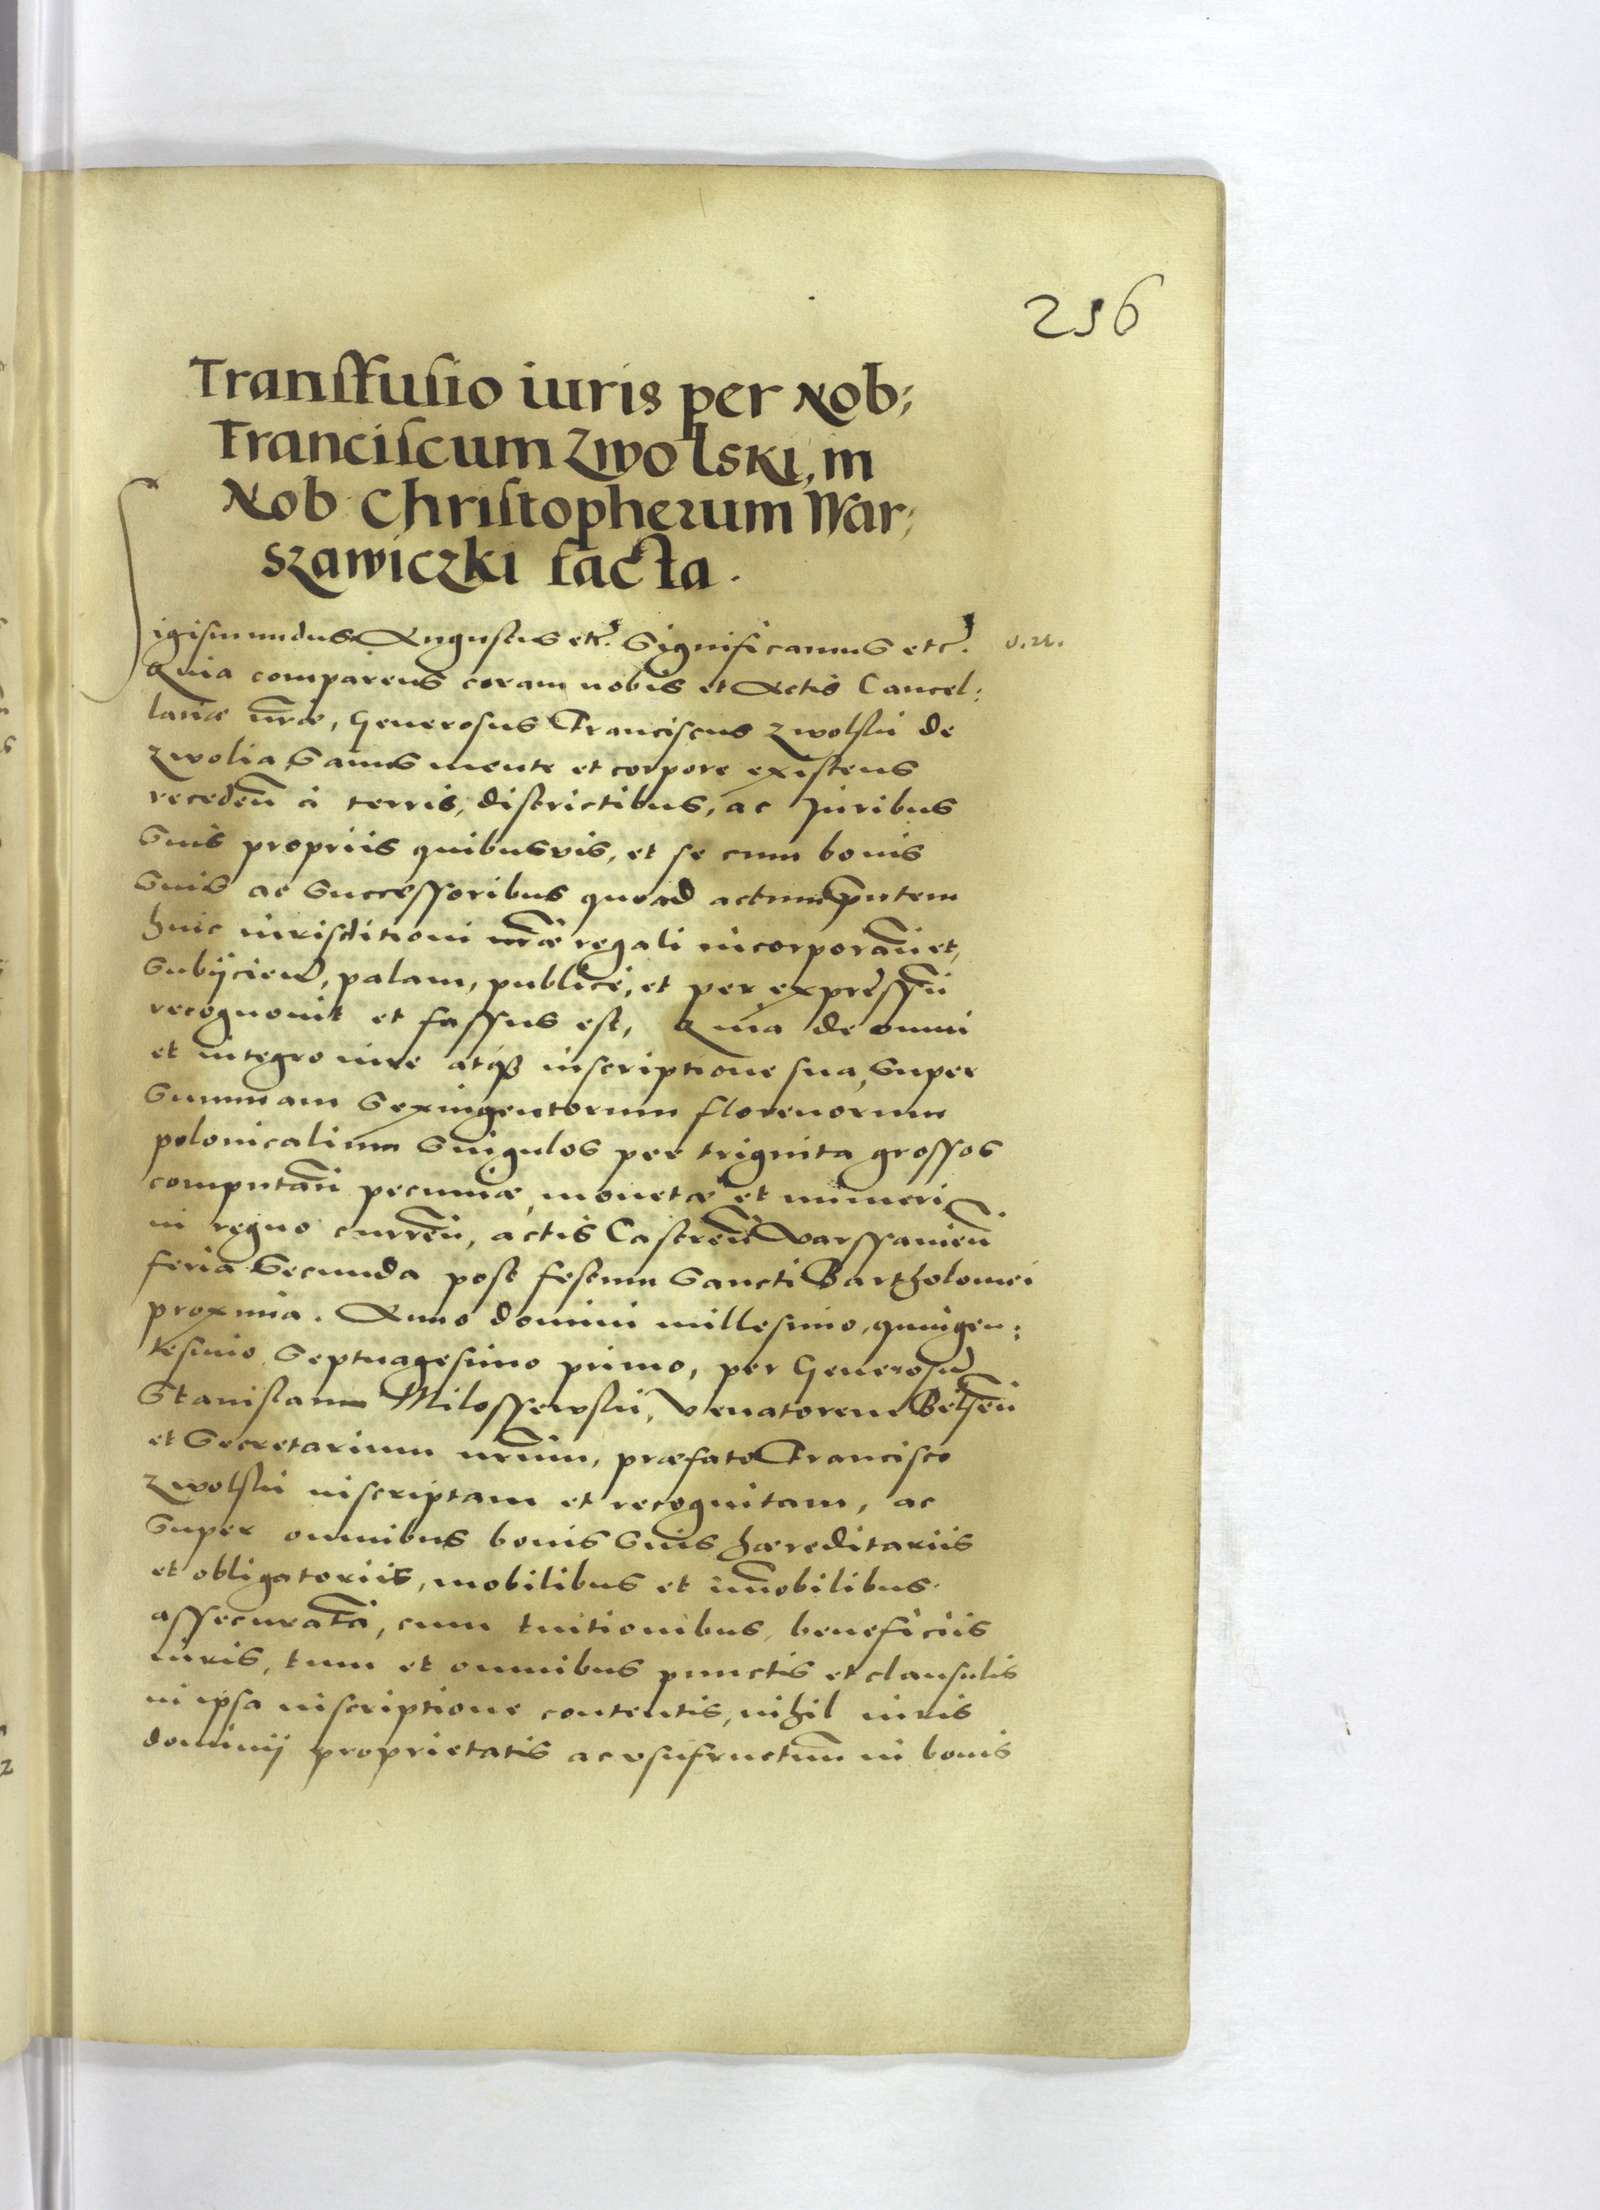 256
Transfusio iuris per Nob:
Franciscum Zwolski, in
Nob Christopherum War:
szawiczki facta.
Sigismundus Augustus etc. Significamus etc.
Quia comparens coram nobis et Actis Cancel:
lariæ nr̃æ, Generosus Franciscus Zwolski de
Zwolia Sanus mente et corpore existens
recedeñ à terris, districtibus, ac Juribus
Suis propriis quibusvis, et se cum bonis
Suis ac Successoribus quoad actum p̃ntem
huic iurisditioni nr̃æ regali incorporañ et
Subijcieñ, palam, publicè, et per expressũ
recognovit et fassus est, Quia de omni
et integro iure atq̃ inscriptione sua, Super
Summam Sexingentorum florenorum
polonicalium Singulos per triginta grossos
computañ pecuniæ, monetæ et numeri
in regno curreñ, actis Castreñ Warssavieñ
feria Secunda post festum Sancti Bartholomei
proxima. Anno domini millesimo, quingen:
tesimo Septuagesimo primo, per Generosũ
Stanislaum Milossewski, Venatorem Belseñ
et Secretarium nr̃um, præfato Francisco
Zwolski inscriptam et recognitam, ac
Super omnibus bonis Suis hæreditariis
et obligatoriis, mobilibus et im̃obilibus
assecuratã, cum tuitionibus, beneficiis
iuris, tum et omnibus punctis et clausulis
in ipsa inscriptione contentis, nihil iuris
dominij proprietatis ac usufructum in bonis